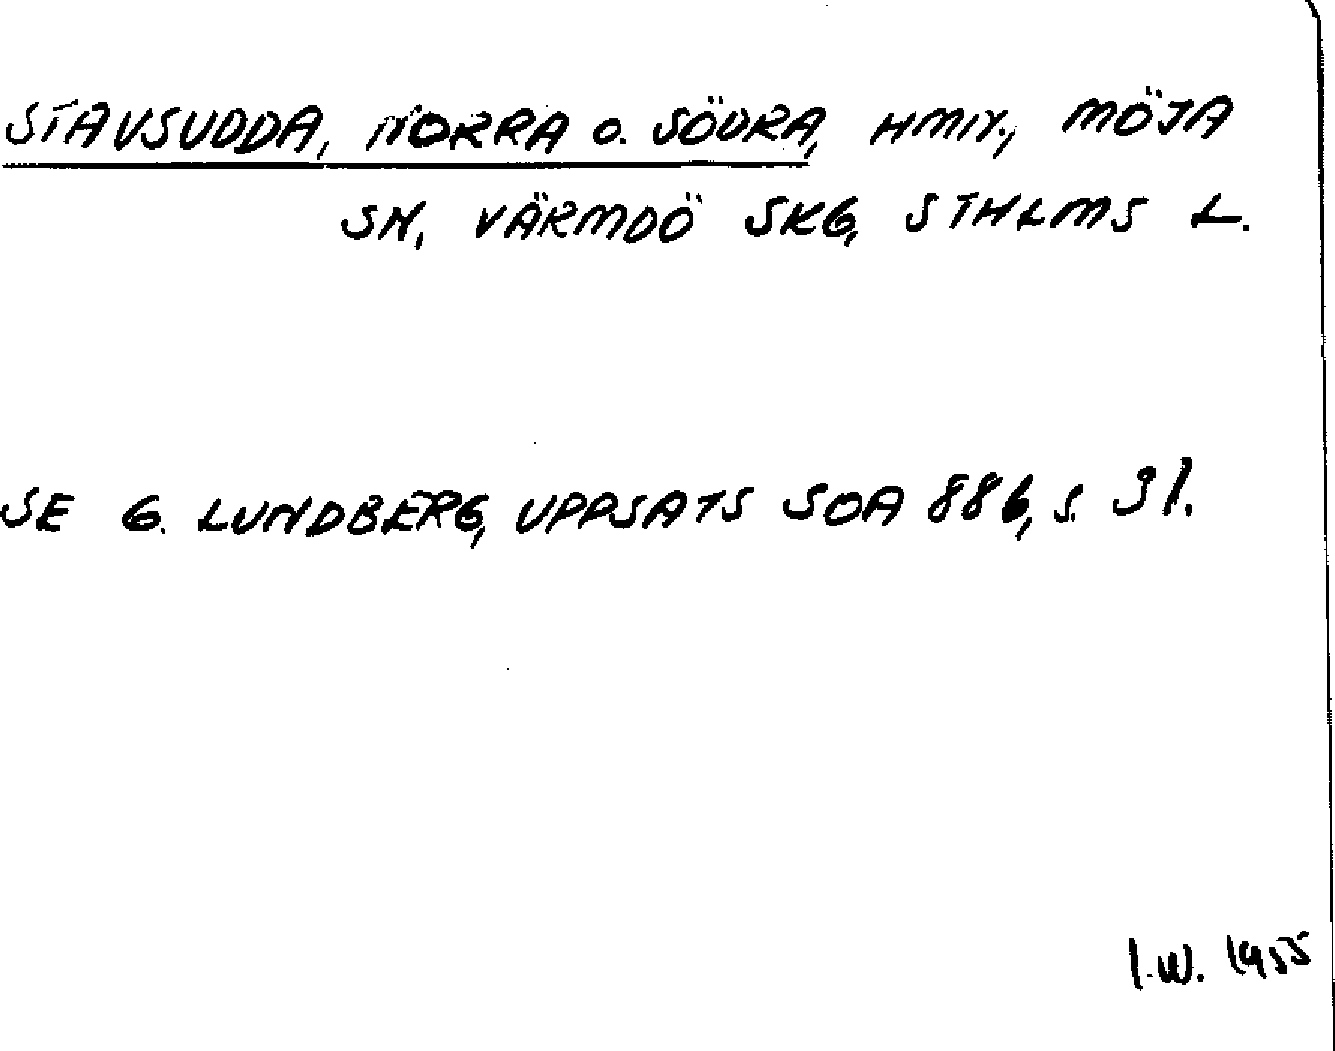 STAVSUDDA, NORRA O. SÖDRA, HMN., MÖJA
SN, VÄRMDÖ SKG, STHLMS L.
SE G. LUNDBERG, UPPSATS SOA 886, S. 91.
I.W. 1955